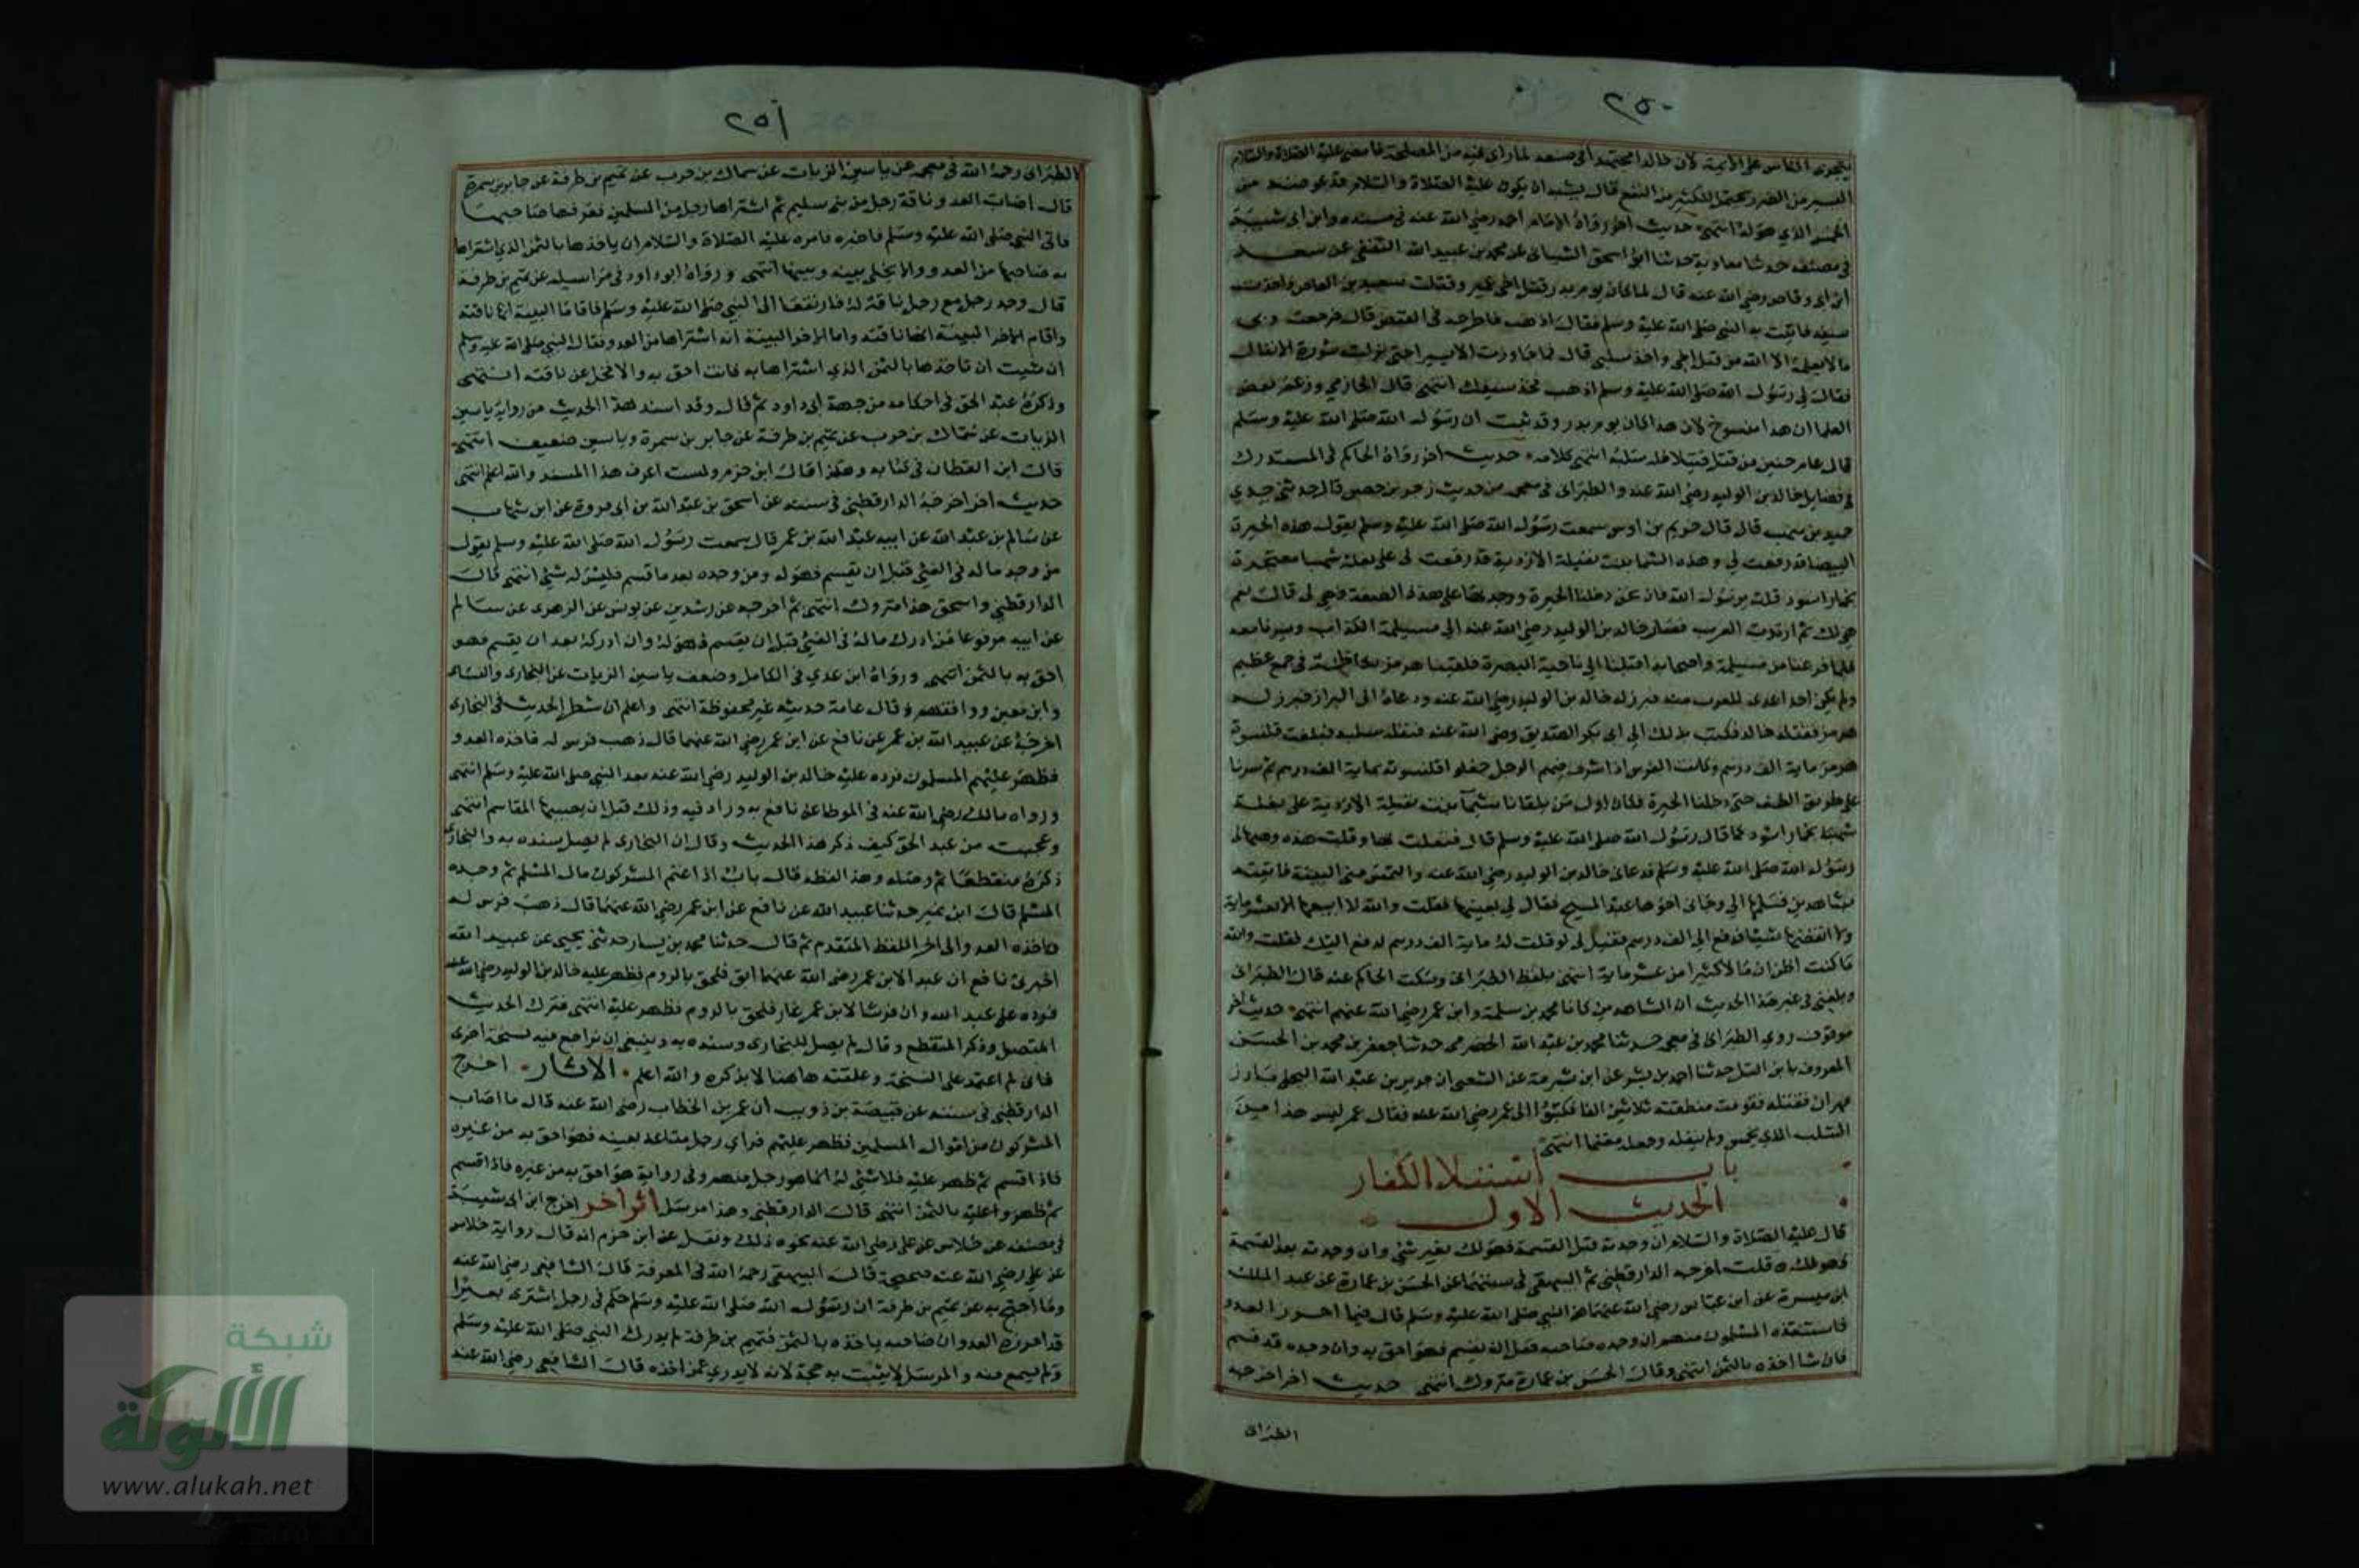 ٢٥٠
يتجرى الناس على الائمة لان خالدا مجتهدا في صنعه لما راى فيه من المصلحة فامضى عليه الصلاة والسلام
اليسير من الضرر يحتمل للكثير من النفع قال يشبه ان يكون عليه الصلاة والسلام قد عوضه من
الخمس الذي هو له انتهى حديث اخر رواه الامام احمد رضي الله عنه في مسنده وابن ابى شيبة
في مصنفه حدثنا معاوية حدثنا ابو اسحق الشيبانى عن محمد بن عبيد الله الثقفى عن سعد
ابن ابى وقاص رضي الله عنه قال لما كان يوم بدر قتل اخى عمير وقتلت سعيد بن العاص واخذت
سيفه فاتيت به النبي صلى الله عليه وسلم فقال اذهب فاطرحه في القبض قال فرجعت وبى
ما لا يعلمه الا الله من قتل اخي واخذ سلبي قال فما جاوزت الا يسيرا حتى نزلت سورة الانفال
فقال لى رسول الله صلى الله عليه وسلم اذهب فخذ سيفك انتهى قال الحازمي وزعم بعض
العلما ان هذا منسوخ لان هذا كان يوم بدر وقد ثبت ان رسول الله صلى الله عليه وسلم
قال عام حنين من قتل قتيلا فله سلبه انتهى كلامه حديث اخر رواه الحاكم في المستدرك
في فضايل خالد بن الوليد رضي الله عنه والطبرانى في معجمه من حديث زحر بن حصن قال حدثنى جدي
حميد بن منهب قال قال خريم بن اوس سمعت رسول الله صلى الله عليه وسلم يقول هذه الحيرة
البيضا قد رفعت لي وهذه الشما بنت نفيلة الازدية قد رفعت لى على بغلة شهبا معتجرة
بخمار اسود قلت يرسول الله فان نحن دخلنا الحيرة ووجدتها على هذه الصفة فهي لى قال نعم
هي لك ثم ارتدت العرب فسار خالد بن الوليد رضي الله عنه الى مسيلمة الكذاب وسرنا معه
فلما فرغنا من مسيلمة واصحابه اقبلنا الى ناحية البصرة فلقينا هرمز بكاظمة في جمع عظيم
ولم يكن احد اعدى للعرب منه فبرز له خالد بن الوليد رضي الله عنه ودعاه الى البراز فبرز له
هرمز فقتله خالد فكتب بذلك الى ابى بكر الصديق رضى الله عنه فنفله سلبه فبلغت قلنسوة
هرمز ماية الف درهم وكانت الفرس اذا اشرف فيهم الرجل جعلوا قلنسوته بماية الف درهم ثم سرنا
على طريق الطف حتى دخلنا الحيرة فكان اول من يلقانا شيما بنت نفيلة الازدية على بغلة
شهبا بخمار اسود كما قال رسول الله صلى الله عليه وسلم قال فتعلقت بها وقلت هذه وهبها لى
رسول الله صلى الله عليه وسلم فدعانى خالد بن الوليد رضي الله عنه والتمس منى البينة فاتيته
بشاهدين فسلمها الى وجانى اخوها عبد المسيح فقال لي بعنيها فقلت والله لا ابيعها الا بعشر ماية
ولا انقصها شيئا فدفع الى الف درهم فقيل لى لو قلت له ماية الف درهم لدفع اليك فقلت والله
ما كنت اظن ان مالا اكثر من عشر ماية انتهى بلفظ الطبرانى وسكت الحاكم عنه قال الطبرانى
وبلغنى في غير هذا الحديث ان الشاهدين كانا محمد بن سلمة وابن عمر رضي الله عنهم انتهى حديث اخر
موقوف روى الطبرانى في معجمه حدثنا محمد بن عبد الله الحضرمى حدثنا جعفر بن محمد بن الحسن
المعروف بابن التل حدثنا احمد بن بشر عن ابن شبرمة عن الشعبى ان جرير بن عبد الله البجلى بارز
مهران فقتله فقومت منطقته ثلاثين الفا فكتبوا الى عمر رضي الله عنه فقال عمر ليس هذا من
السلب الذي يخمس ولم ينفله وجعله مغنما انتهى
باب استيلاء الكفار
الحديث الاول
قال عليه الصلاة والسلام ان وجدته قبل القسمة فهو لك بغير شئ وان وجدته بعد القسمة
فهو لك ه قلت اخرجه الدارقطنى ثم البيهقى في سننهما عن الحسن بن عمارة عن عبد الملك
ابن ميسرة عن ابن عباس رضي الله عنهما عن النبي صلى الله عليه وسلم قال فيما احرز العدو
فاستنقذه المسلمون منهم ان وجده صاحبه قبل ان يقسم فهو احق به وان وجده قد قسم
فان شا اخذه بالثمن انتهى وقال الحسن بن عمارة متروك انتهى حديث اخر اخرجه
الطبرانى
٢٥١
الطبرانى رحمه الله في معجمه عن ياسين الزيات عن سماك بن حرب عن تميم بن طرفة عن جابر بن سمرة
قال اصاب العدو ناقة رجل من بنى سليم ثم اشتراها رجل من المسلمين فعرفها صاحبها
فاتى النبي صلى الله عليه وسلم فاخبره فامره عليه الصلاة والسلام ان ياخذها بالثمن الذي اشتراها
به صاحبها من العدو والا يخلى بينه وبينها انتهى ورواه ابو داود في مراسيله عن تميم بن طرفة
قال وجد رجل مع رجل ناقة له فارتفعا الى النبي صلى الله عليه وسلم فاقاما البينة انها ناقته
واقام الاخر البينة انها ناقته واما الاخر البينة انه اشتراها من العدو فقال النبي صلى الله عليه وسلم
ان شيت ان تاخذها بالثمن الذي اشتراها به فانت احق به والا فخل عن ناقته انتهى
وذكره عبد الحق في احكامه من جهة ابى داود ثم قال وقد اسند هذا الحديث من رواية ياسين
الزيات عن سماك بن حرب عن تميم بن طرفة عن جابر بن سمرة وياسين ضعيف انتهى
قال ابن القطان في كتابه وهكذا قال ابن حزم ولست اعرف هذا المسند والله اعلم انتهى
حديث اخر اخرجه الدارقطنى في سننه عن اسحق بن عبد الله بن ابى فروة عن ابن شهاب
عن سالم بن عبد الله عن ابيه عبد الله بن عمر قال سمعت رسول الله صلى الله عليه وسلم يقول
من وجد ماله في الفئ قبل ان يقسم فهو له ومن وجده بعد ما قسم فليس له شئ انتهى قال
الدارقطنى واسحق هذا متروك انتهى ثم اخرجه عن رشدين عن يونس عن الزهرى عن سالم
عن ابيه مرفوعا من ادرك ماله في الفئ قبل ان يقسم فهو له وان ادركه بعد ان يقسم فهو
احق به بالثمن انتهى ورواه ابن عدي في الكامل وضعف ياسين الزيات عن البخارى والنساى
وابن معين ووافقهم وقال عامة حديثه غير محفوظة انتهى واعلم ان شطر الحديث في البخارى
اخرجه عن عبيد الله بن عمر عن نافع عن ابن عمر رضي الله عنهما قال ذهب فرس له فاخذه العدو
فظهر عليهم المسلمون فرده عليه خالد بن الوليد رضي الله عنه بعد النبي صلى الله عليه وسلم انتهى
ورواه مالك رضي الله عنه في الموطا عن نافع به وزاد فيه وذلك قبل ان يصيبها المقاسم انتهى
وعجبت من عبد الحق كيف ذكر هذا الحديث وقال ان البخارى لم يصل سنده به والبخارى
ذكره منقطعا ثم وصله وهذا لفظه قال باب اذا غنم المشركون مال المسلم ثم وجده
المسلم قال ابن نمير حدثنا عبيد الله عن نافع عن ابن عمر رضي الله عنهما قال ذهب فرس له
فاخذه العدو الى اخر اللفظ المتقدم ثم قال حدثنا محمد بن يسار حدثنى يحيى عن عبيد الله
اخبرنى نافع ان عبد الابن عمر رضى الله عنهما ابق فلحق بالروم فظهر عليه خالد بن الوليد رضي الله عنه
فرده على عبد الله وان فرسا لابن عمر غار فلحق بالروم فظهر عليه انتهى فترك الحديث
المتصل وذكر المنقطع وقال لم يصل البخارى وسنده به وينبغى ان يراجع فيه نسخة اخرى
فانى لم اعتمد على النسخة وعلقته هاهنا لا بذكره والله اعلم الاثار اخرج
الدارقطنى في سننه عن قبيصة بن ذويب ان عمر بن الخطاب رضي الله عنه قال ما اصاب
المشركون من اموال المسلمين فظهر عليهم فراى رجل متاعه بعينه فهو احق به من غيره
فاذا قسم ثم ظهر عليه فلا شئ له انما هو رجل منهم وفي رواية هو احق به من غيره فاذا قسم
ثم ظهروا عليه بالثمن انتهى قال الدارقطنى وهذا مرسل اثر اخر اخرج ابن ابى شيبة
في مصنفه عن خلاس عن على رضي الله عنه نحوه ذلك ونقل عن ابن حزم انه قال رواية خلاس
عن علي رضي الله عنه صحيحة قال البيهقى رحمه الله في المعرفة قال الشافعى رضي الله عنه
وما احتج به عن تميم بن طرفة ان رسول الله صلى الله عليه وسلم حكم في رجل اشترى بعيرا
قد احرزه العدو ان صاحبه ياخذه بالثمن فتميم بن طرفة لم يدرك النبي صلى الله عليه وسلم
ولم يسمع منه والمرسل لا يثبت به حجة لانه لا يدرى عمن اخذه قال الشافعى رضي الله عنه
شبكة
الألوكة
www.alukah.net